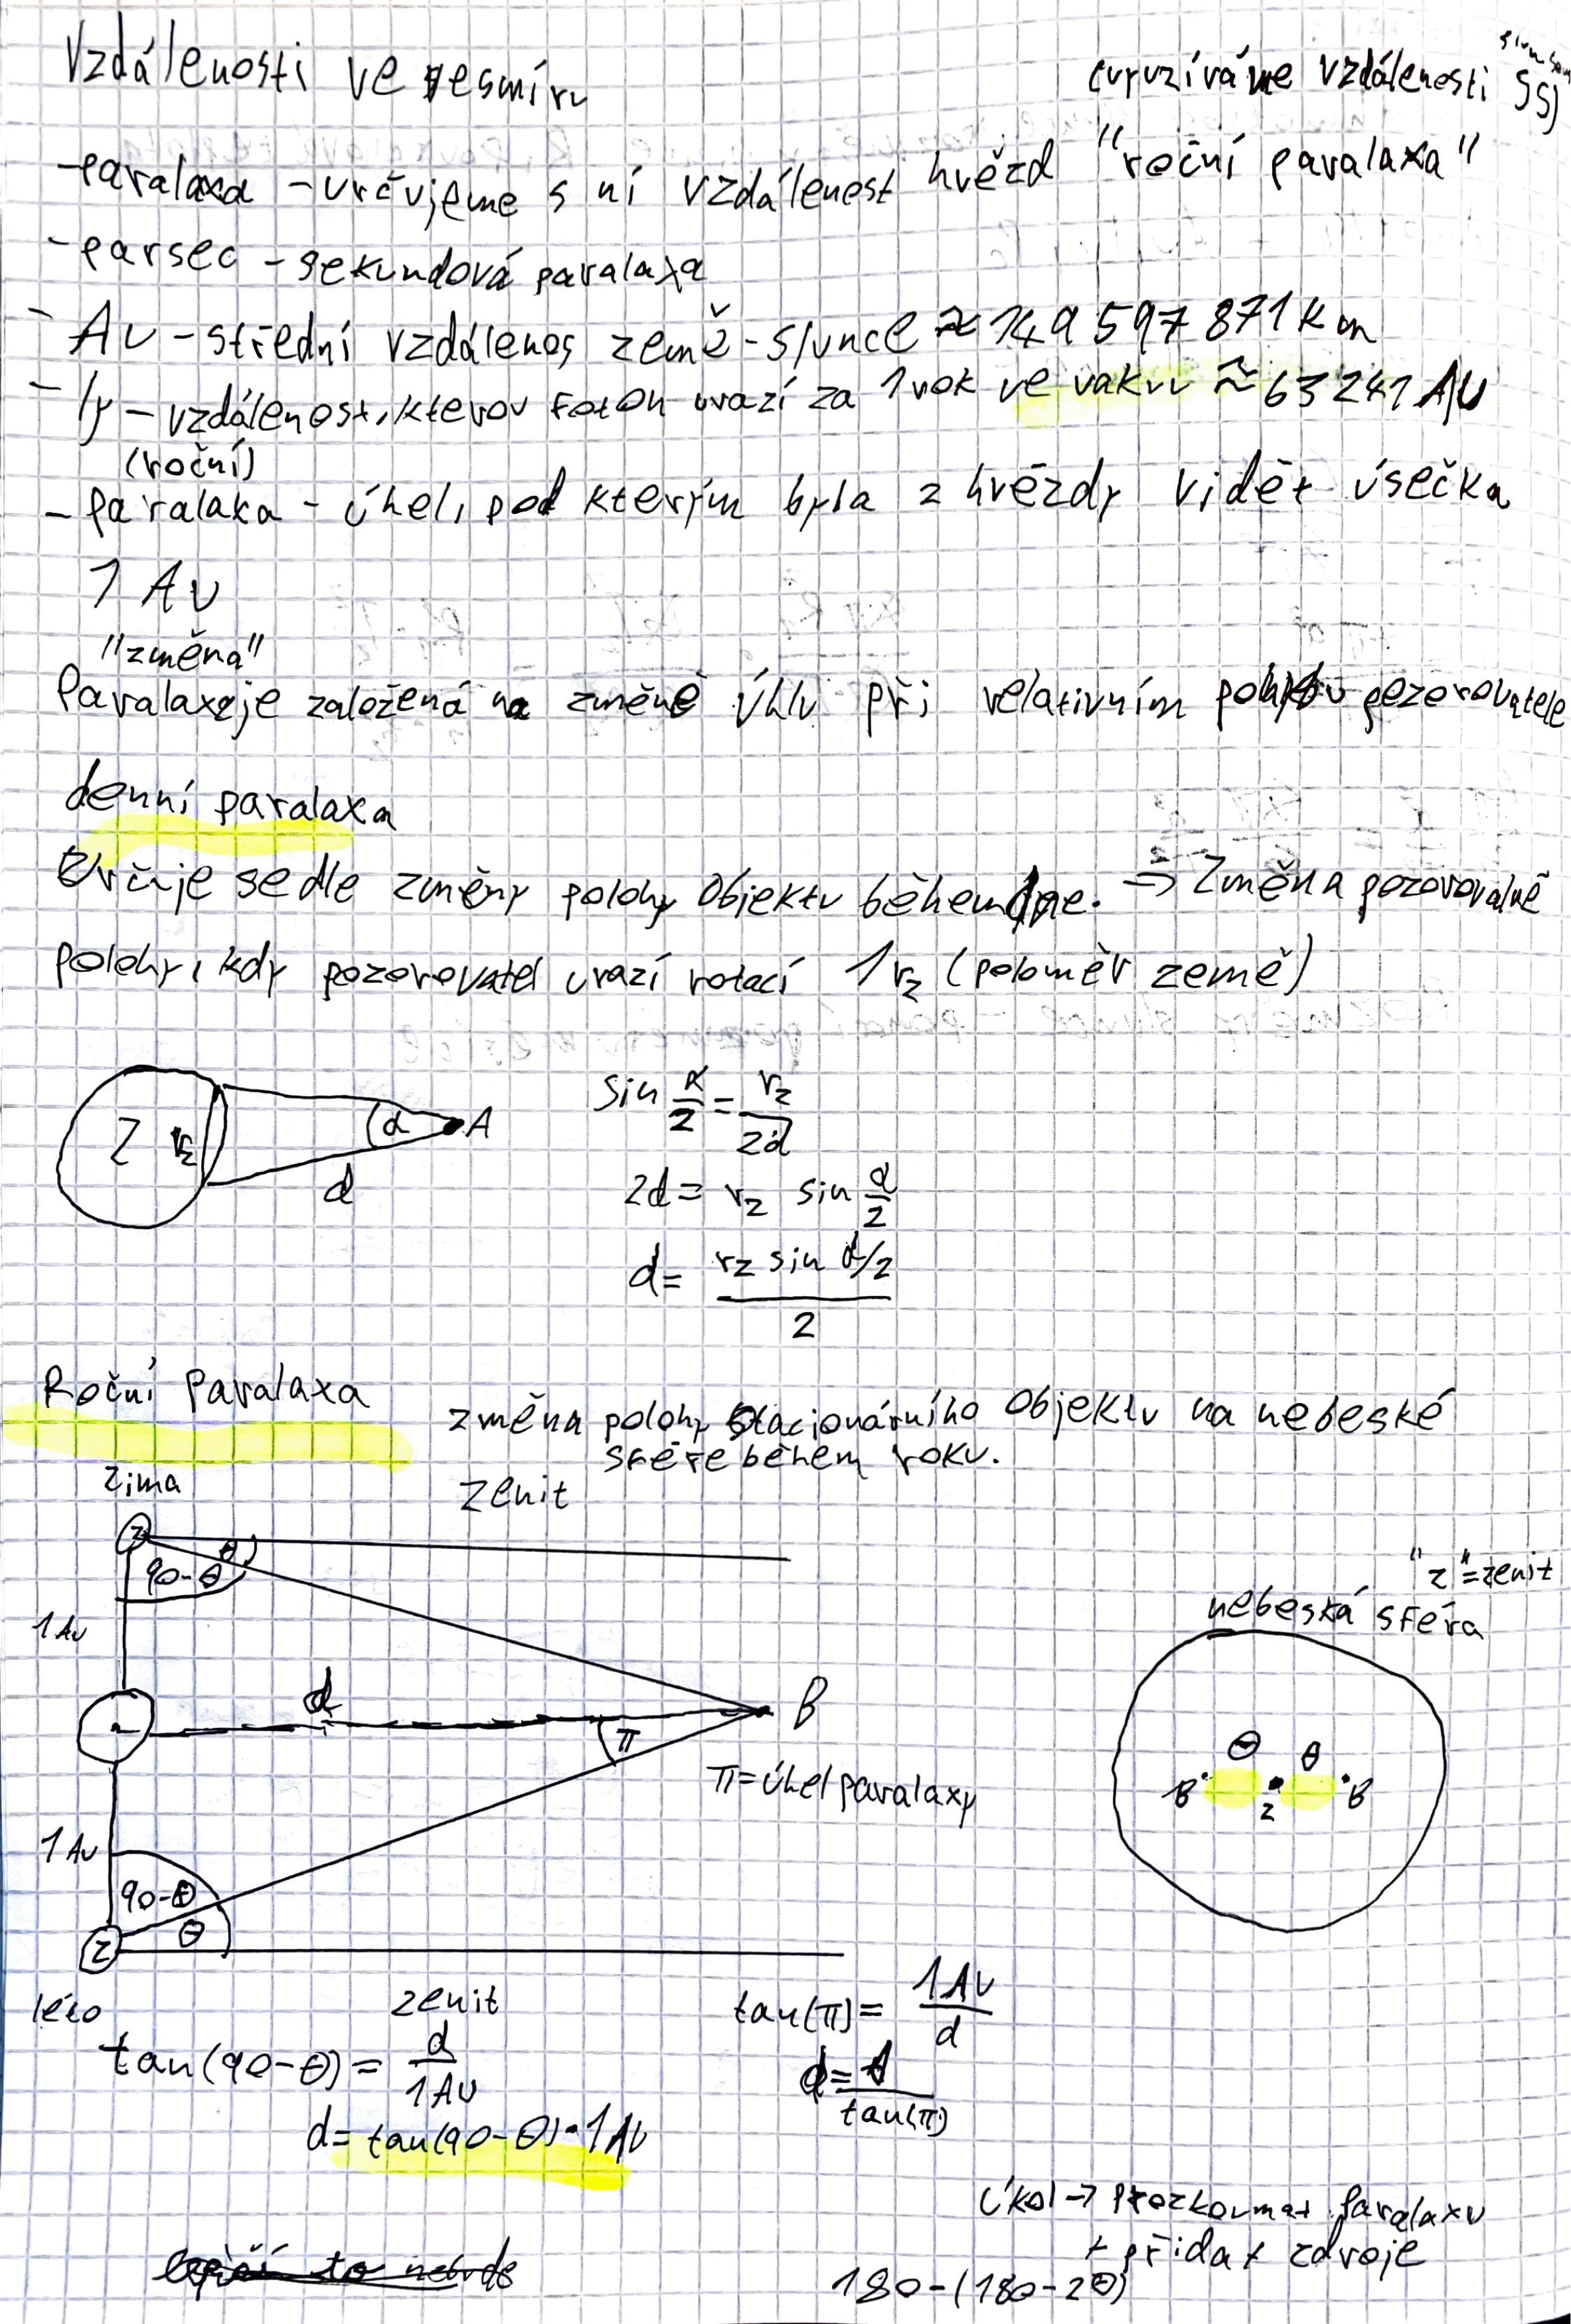 Vzdálenosti ve vesmíru
(vyuzíváme vzdálenosti SS)
-paralaxa - určujeme s ní vzdálenost hvězd "roční paralaxa"
-parsec - sekundová paralaxa
- AU - střední vzdálenos země - slunce ≈ 149 597 871 km
- ly - vzdálenost, kterou foton urazí za 1 rok ve vakuu ≈ 63 241 AU
(roční)
- paralaka - úhel, pod kterým byla z hvězdy vidět úsečka
1 AU
"změna"
Paralaxa je založená na změně úhlu při relativním pohybu pozorovatele
denní paralaxa
Určuje se dle změny polohy objektu během dne. => Změna pozorovatelně
polohy, kdy pozorovatel urazí rotací 1 rz (poloměr země)
Z rz α A
d
sin α/2 = rz/2d
2d = rz sin α/2
d = rz sin α/2 / 2
Roční Paralaxa
změna polohy stacionárního objektu na nebeské
sféře během roku.
zima
zenit
Z θ
90-θ
1 AU
d
B
π
π = úhel paralaxy
1 AU
90-θ
θ
Z
léto
zenit
"z" = zenit
nebeská sféra
θ θ
B z B
tan(90-θ) = d/1AU
d = tan(90-θ) · 1AU
tan(π) = 1AU/d
d = 1/tan(π)
úkol -> prozkoumat paralaxu
+ přidat zdroje
180-(180-2θ)